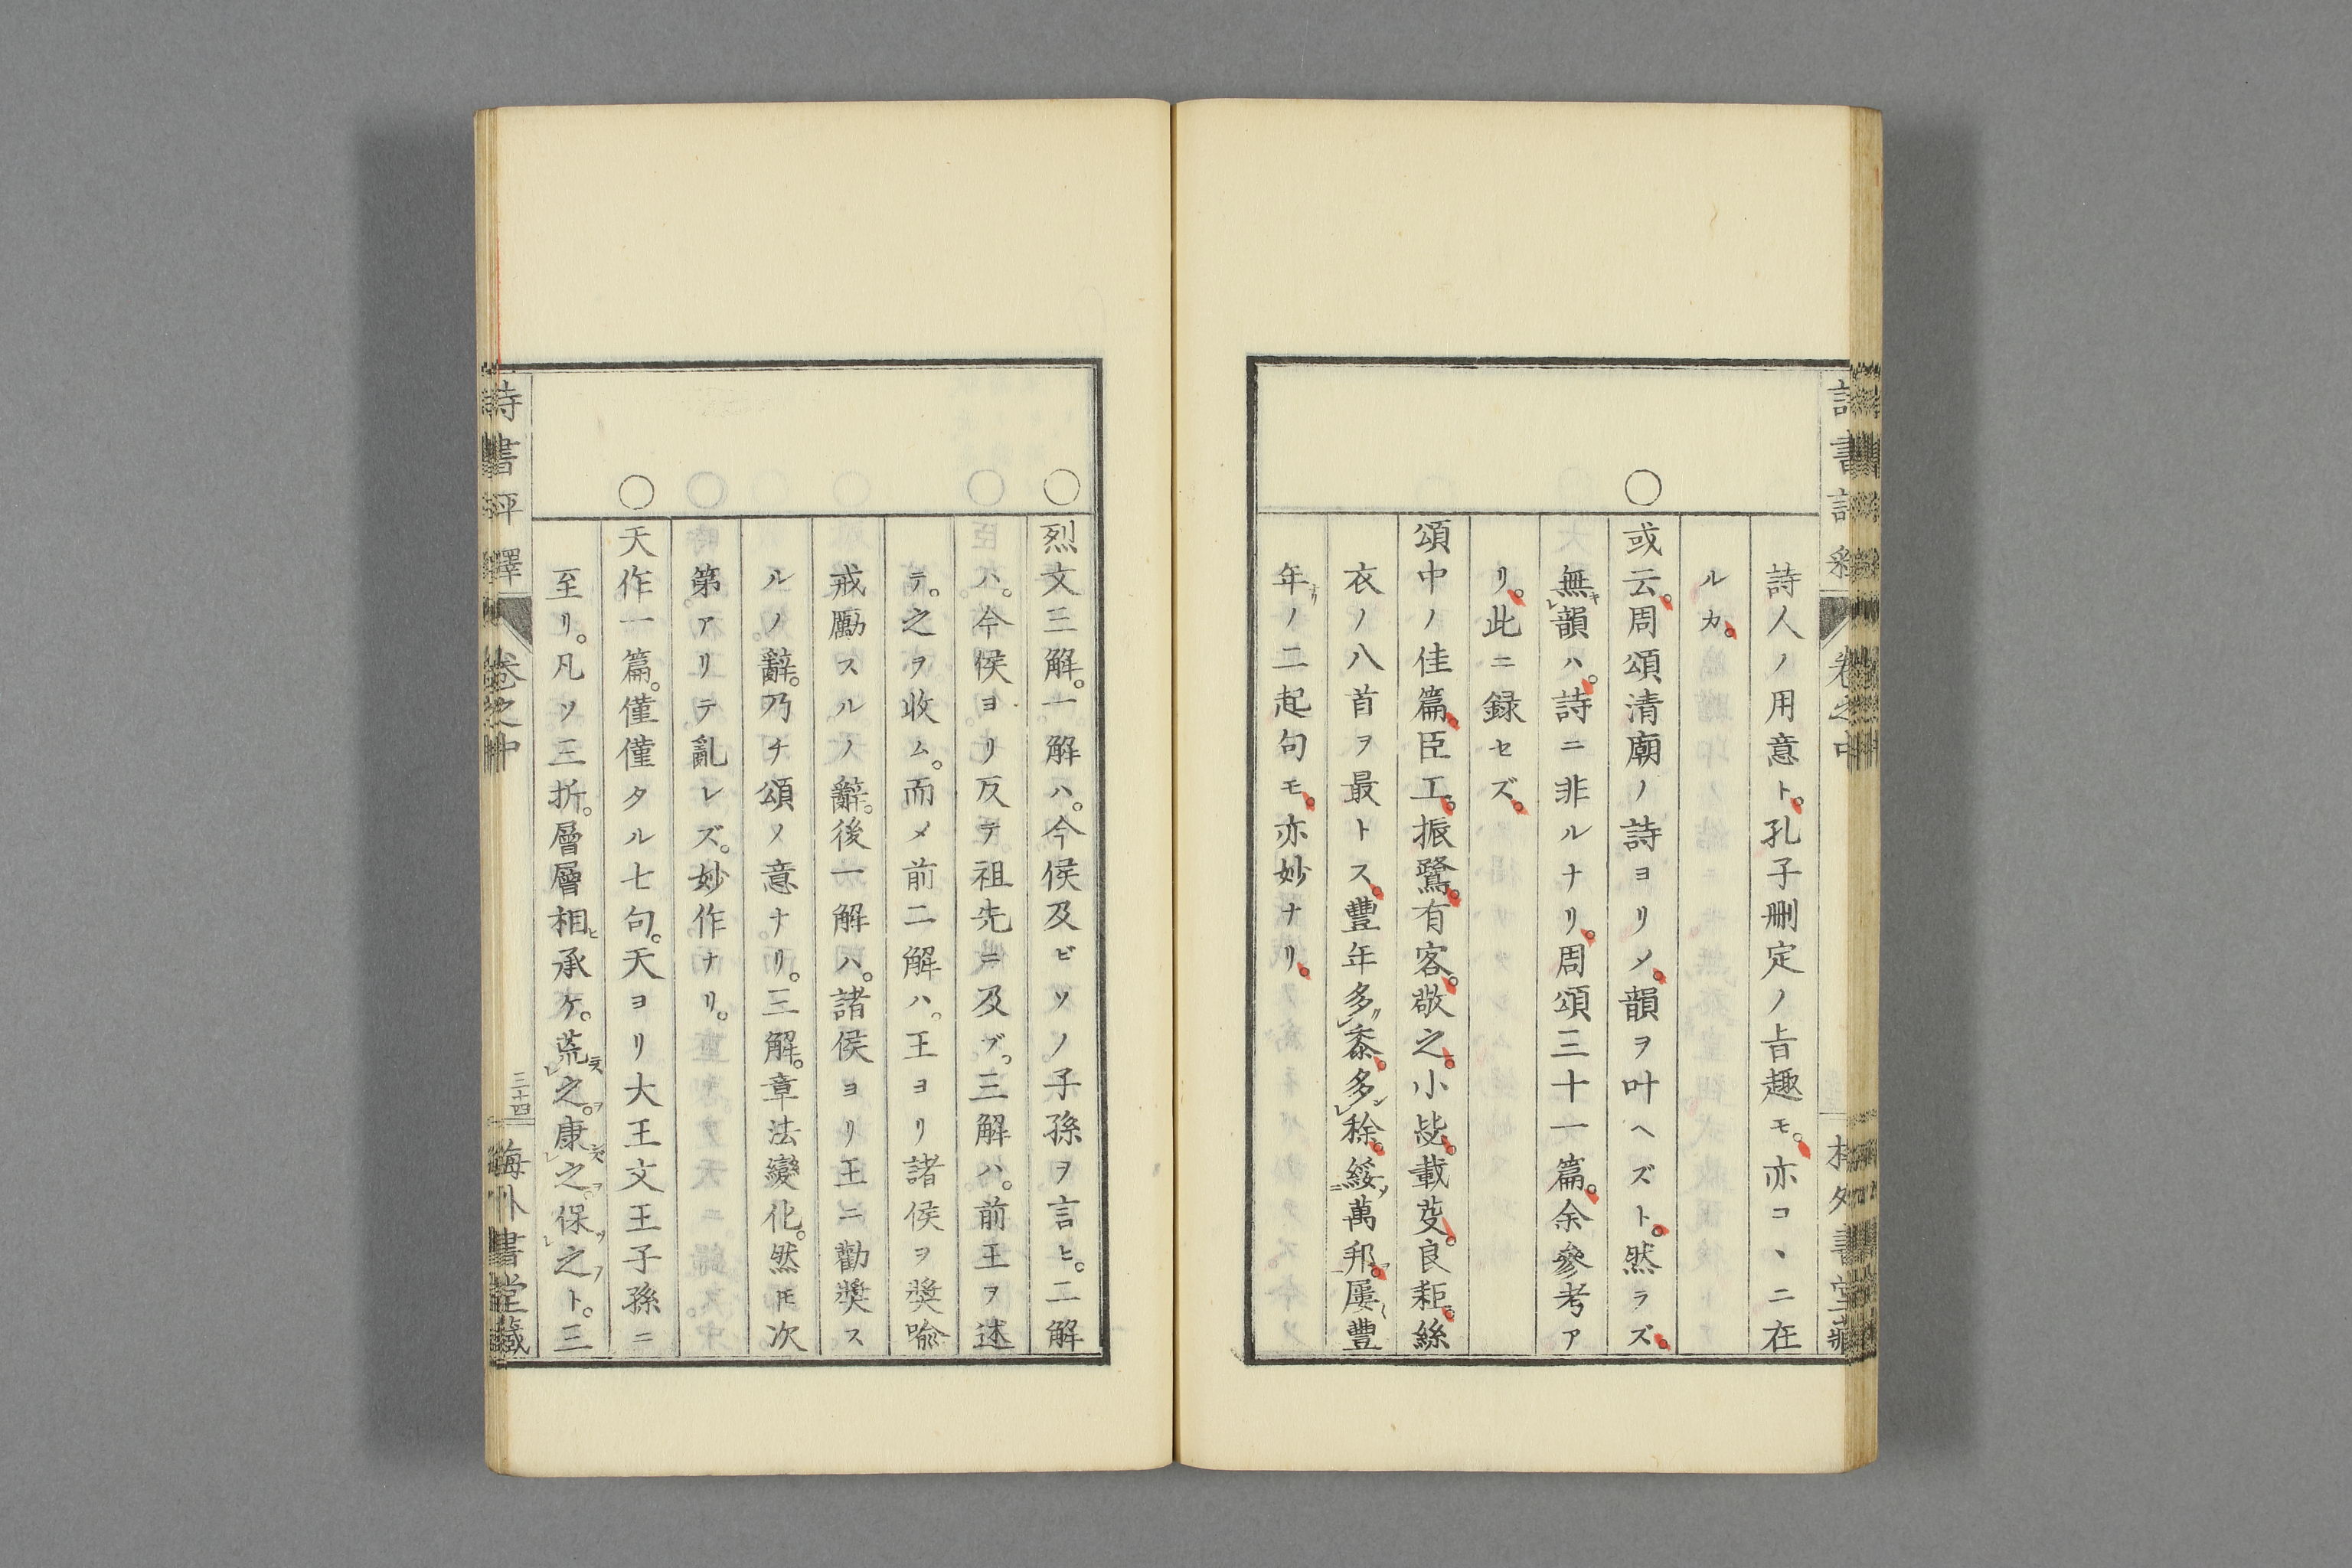 詩人ノ用意ト。孔子刪定ノ旨趣モ。亦コヽニ在
ルカ。
○或云。周頌清廟ノ詩ヨリメ。韻ヲ叶ヘズト。然ラズ。
無キレ韻ハ。詩ニ非ルナリ。周頌三十一篇。余參考ア
リ。此ニ録セズ。
頌中ノ佳篇。臣工。振鷺。有客。敬之。小毖。載芟。良耜。絲
衣ノ八首ヲ最トス。豐年多レ黍。多レ稌。綏二萬邦一。屢豐
年ノ二起句モ。亦妙ナリ。
○烈文三解。一解ハ。今侯及ビソノ子孫ヲ言ヒ。二解
ハ。今侯ヨリ反テ祖先ニ及ブ。三解ハ。前王ヲ述
テ。之ヲ收ム。而メ前二解ハ。王ヨリ諸侯ヲ奬喩
戒勵スルノ辭。後一解ハ。諸侯ヨリ王ニ勸奬ス
ルノ辭。乃チ頌ノ意ナリ。三解。章法變化。然ㇳモ次
第アリテ亂レズ。妙作ナリ。
○天作一篇。僅僅タル七句。天ヨリ大王文王子孫ニ
至リ。凡ソ三折。層層相ヒ承ケ。荒レ之。康レ之。保レ之ト。三
詩書評釋
卷之中
三十四
梅外書堂藏